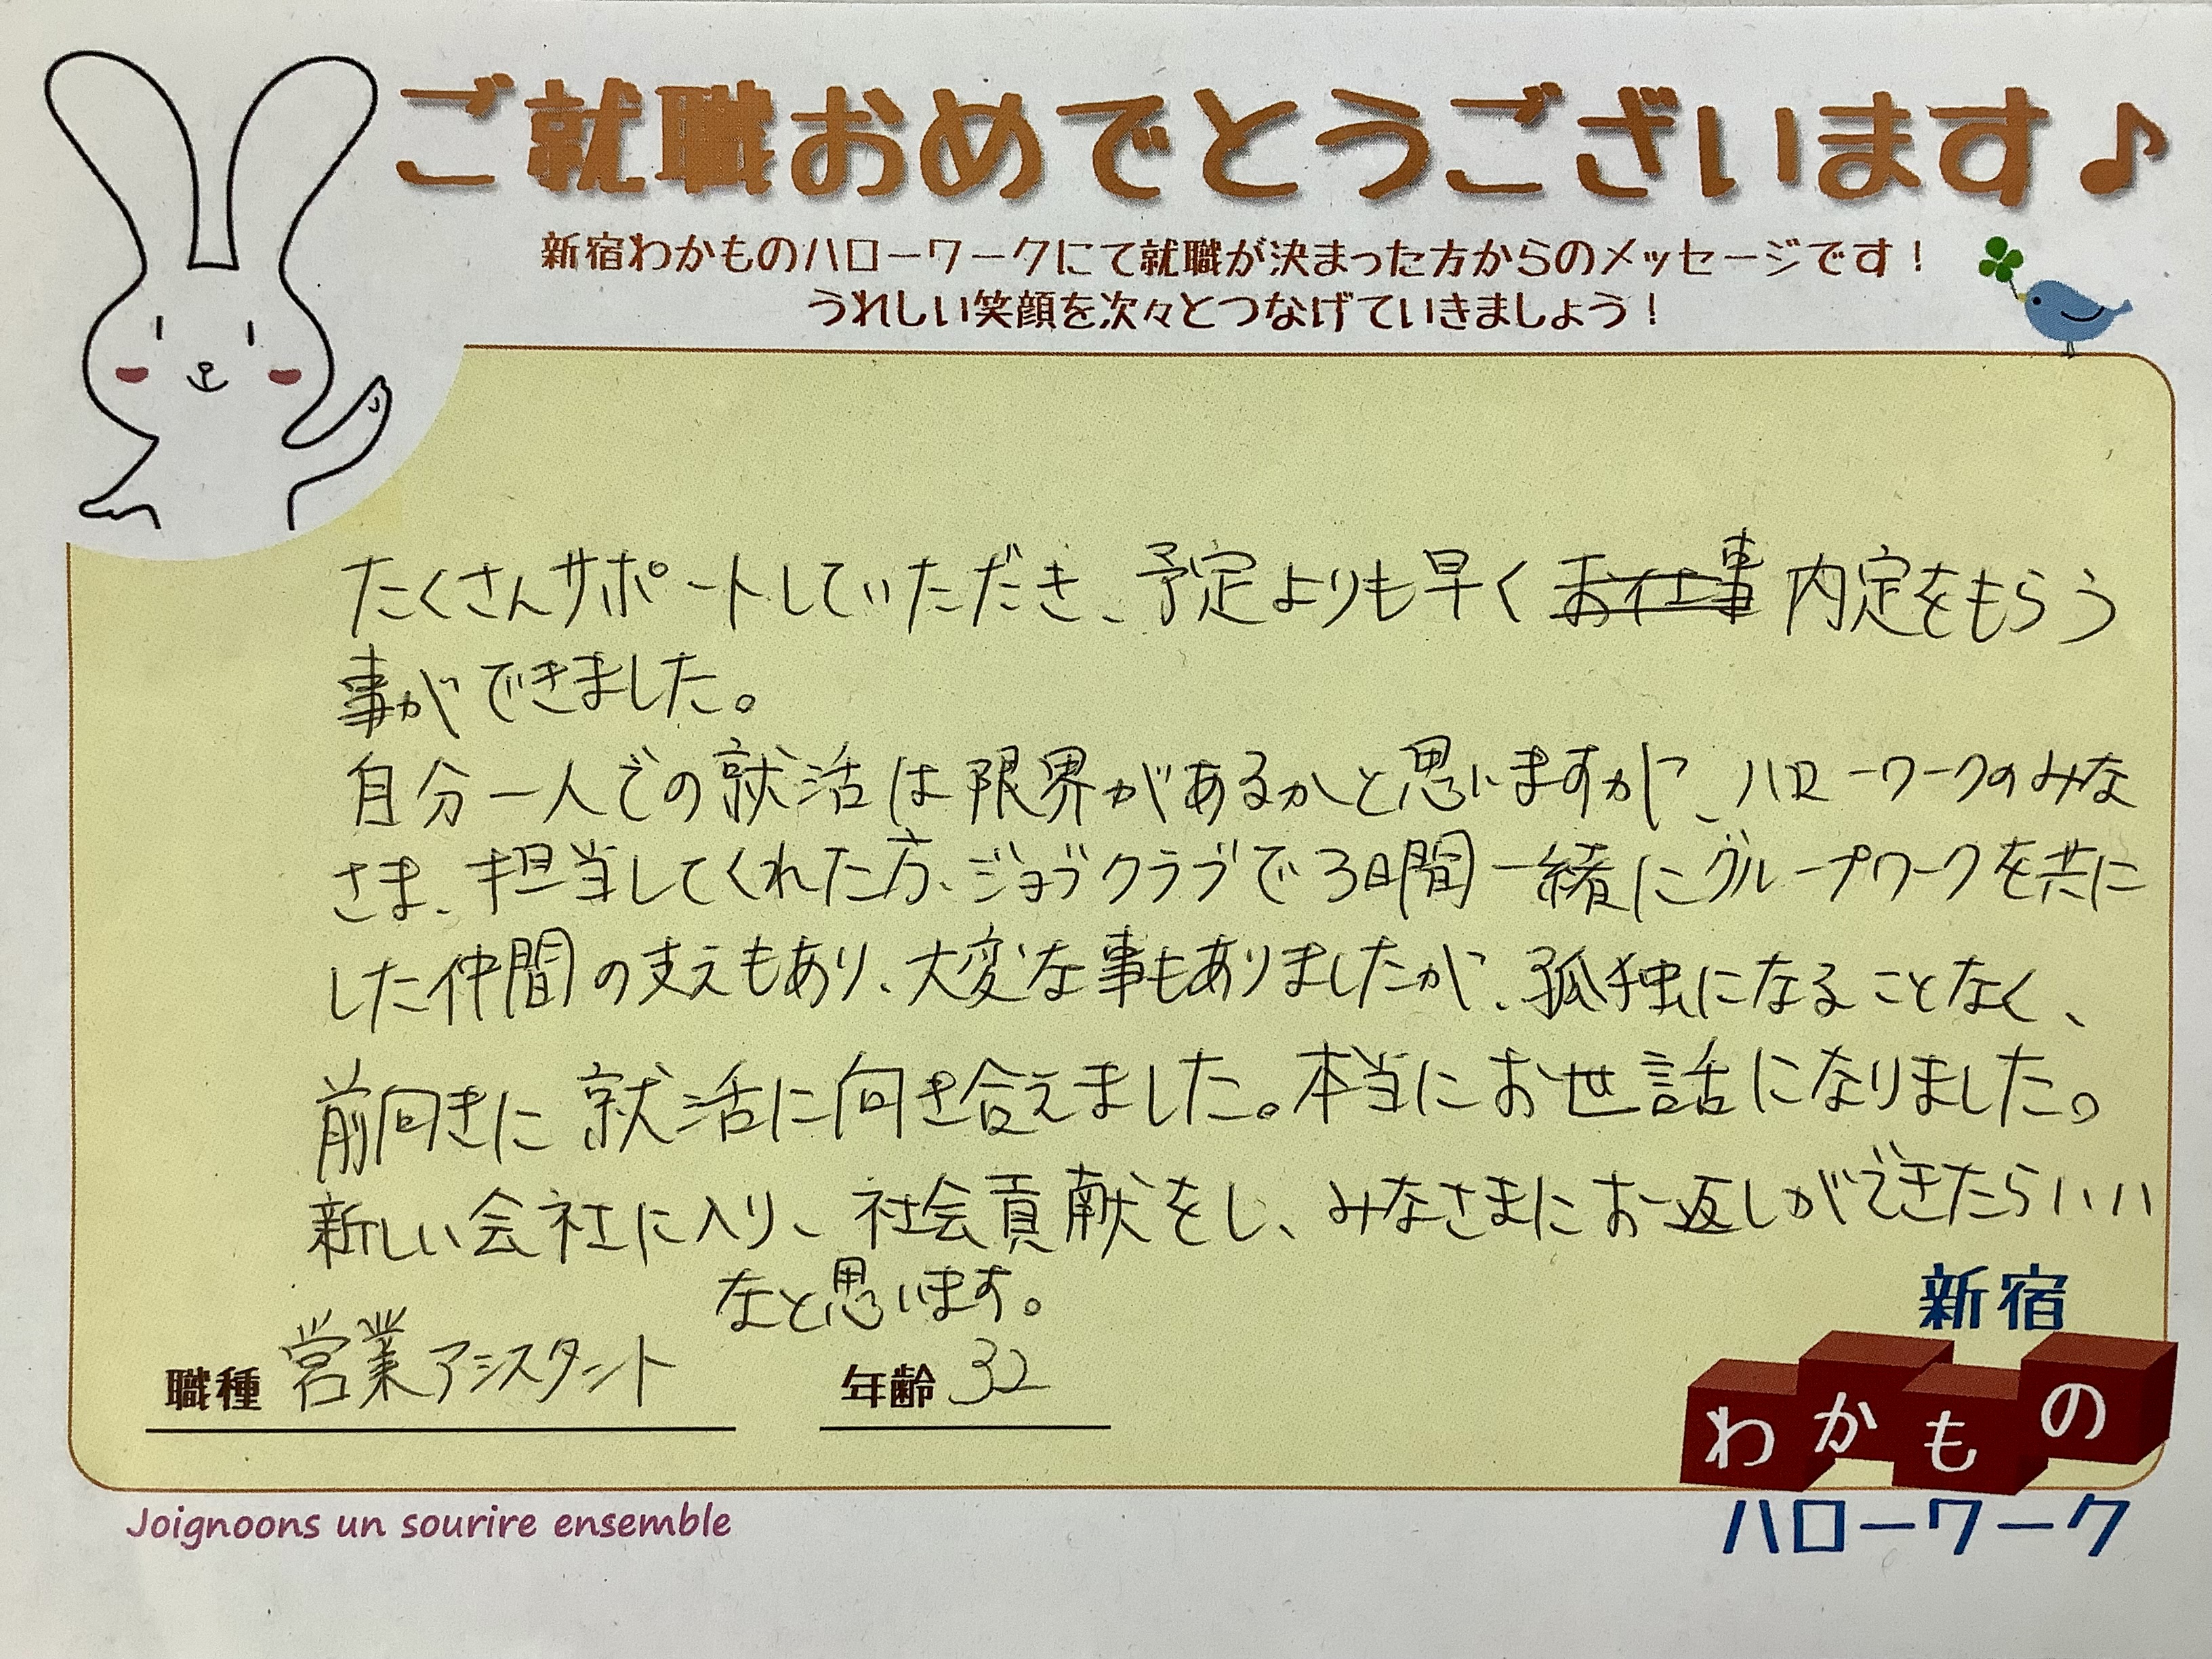 ご就職おめでとうございます♪
新宿わかものハローワークにて就職が決まった方からのメッセージです！
うれしい笑顔を次々とつなげていきましょう！
たくさんサポートしていただき、予定よりも早く お仕事 内定をもらう
事ができました。
自分一人での就活は限界があるかと思いますが、ハローワークのみな
さま、担当してくれた方、ジョブクラブで3日間一緒にグループワークを共に
した仲間の支えもあり、大変な事もありましたが、孤独になることなく、
前向きに就活に向き合えました。本当にお世話になりました。
新しい会社に入り、社会貢献をし、みなさまにお返しができたらいい
なと思います。
職種 営業アシスタント
年齢 32
新宿
わかもの
ハローワーク
Joignoons un sourire ensemble